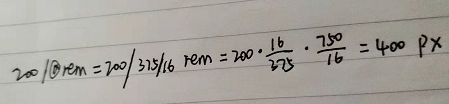 200/①rem = 200/375/16 rem = 200 · 16/375 · 750/16 = 400 px